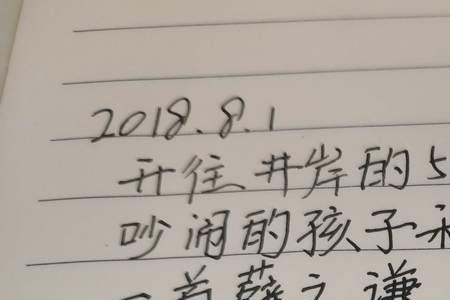 2018.8.1
开往井岸的5
吵闹的孩子
一首薛之谦